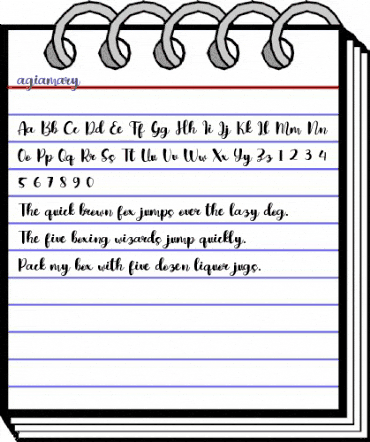 agiamary
Aa Bb Cc Dd Ee Ff Gg Hh Ii Jj Kk Ll Mm Nn
Oo Pp Qq Rr Ss Tt Uu Vv Ww Xx Yy Zz 1 2 3 4
5 6 7 8 9 0
The quick brown fox jumps over the lazy dog.
The five boxing wizards jump quickly.
Pack my box with five dozen liquor jugs.